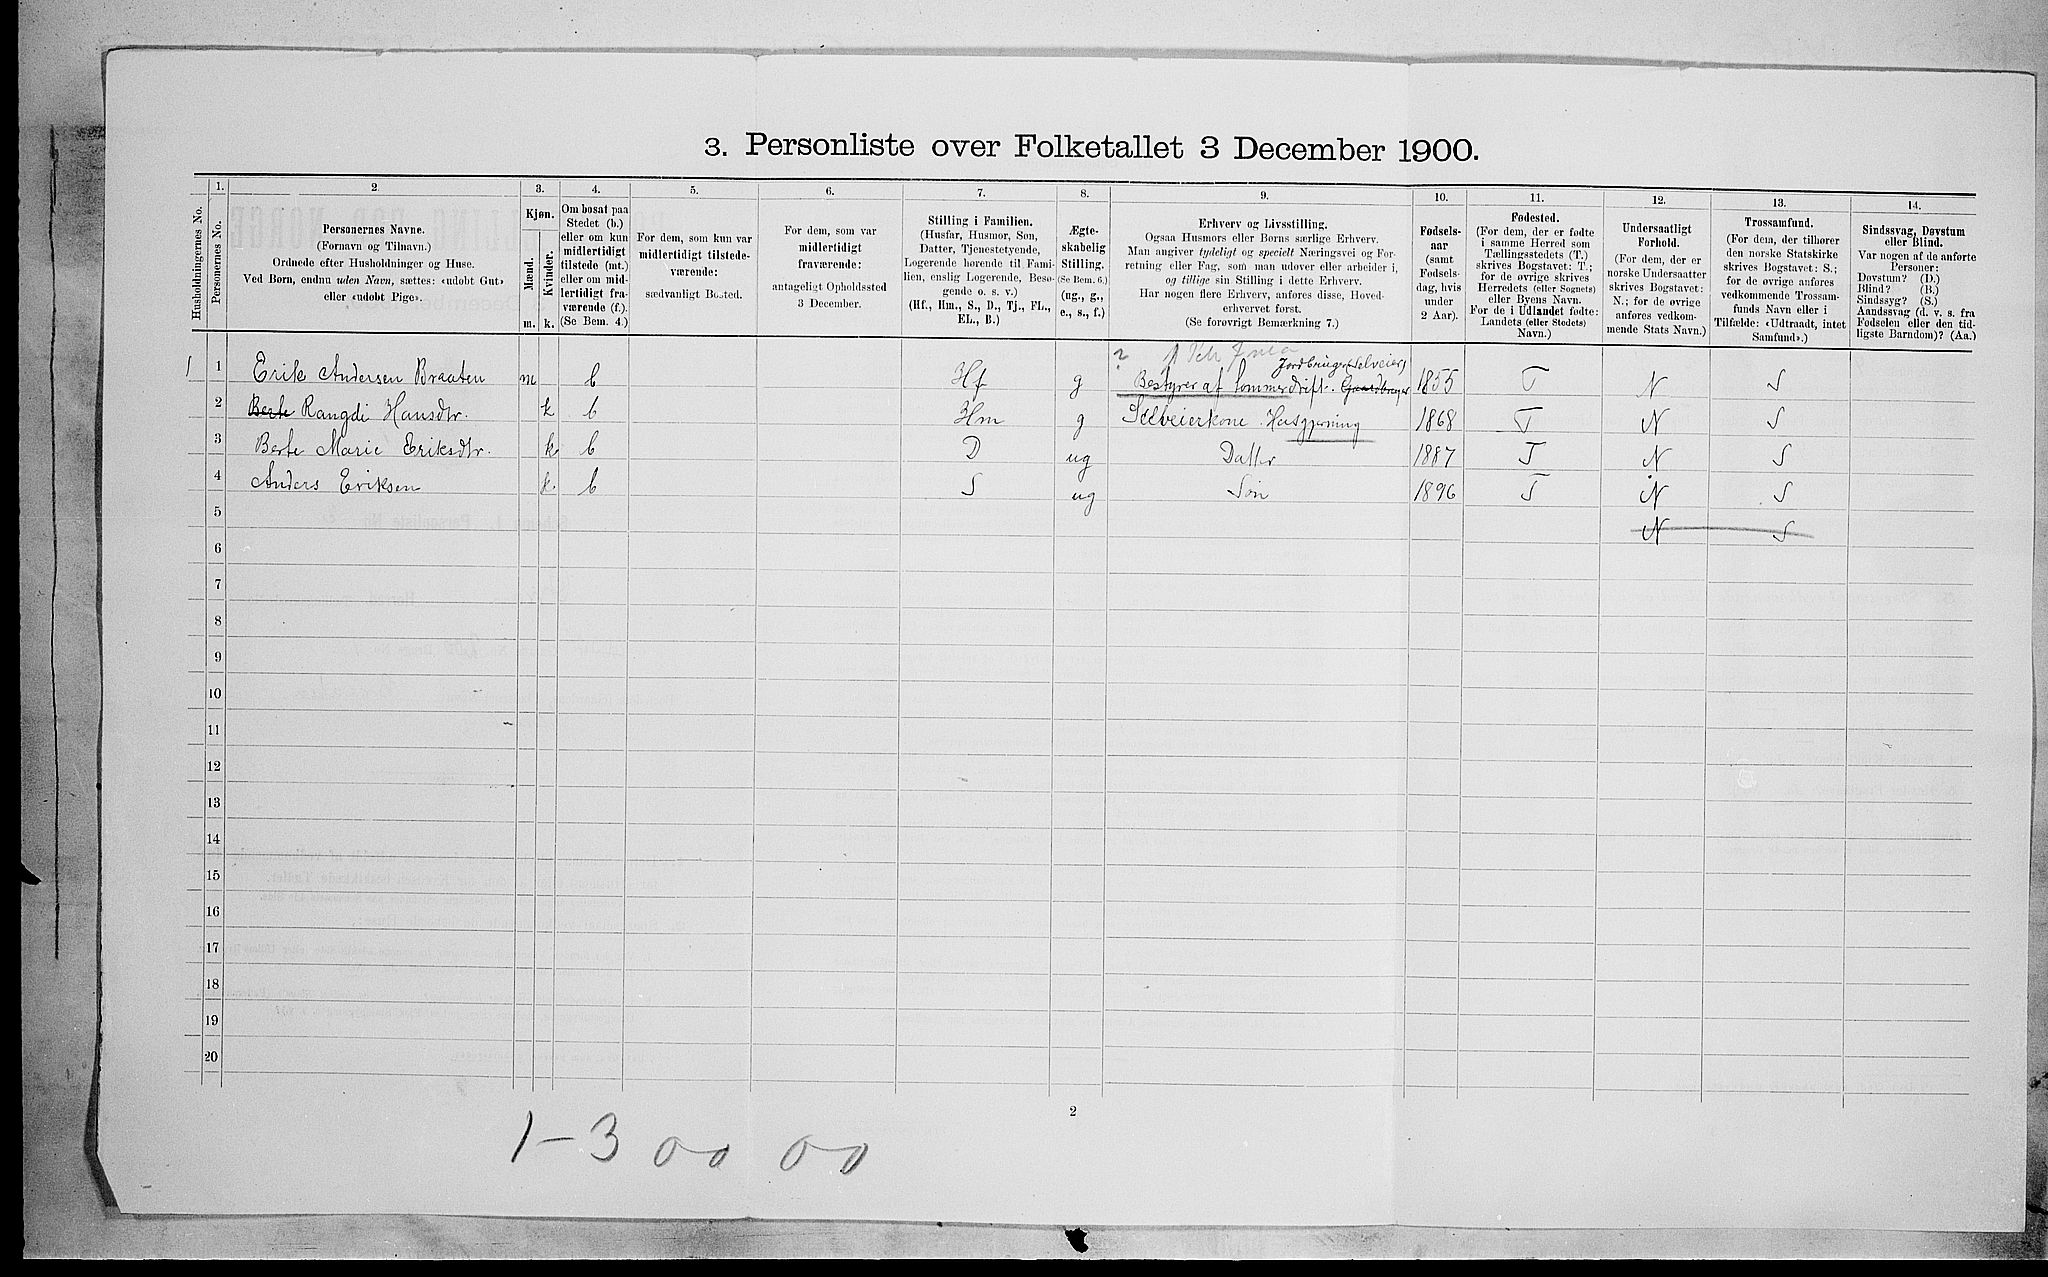 3. Personliste over Folketallet 3 December 1900.
1. 2. 3. 4. 5. 6. 7. 8. 9. 10. 11. 12. 13. 14.
Husholdningernes No.
Personernes No.
Personernes Navne.
(Fornavn og Tilnavn.)
Ordnede efter Husholdninger og Huse.
Ved Børn, endnu uden Navn, sættes: «udobt Gut»
eller «udobt Pige».
Kjøn.
Mænd.
Kvinder.
m. k.
Om bosat paa
Stedet (b.)
eller om kun
midlertidigt
tilstede (mt.)
eller om mid-
lertidigt fra-
værende (f.).
(Se Bem. 4.)
For dem, som kun var
midlertidigt tilstede-
værende:
sædvanligt Bosted.
For dem, som var
midlertidigt
fraværende:
antageligt Opholdssted
3 December.
Stilling i Familien.
(Husfar, Husmor, Søn,
Datter, Tjenestetyende,
Logerende hørende til Fami-
lien, enslig Logerende, Besø-
gende o. s. v.)
(Hf., Hm., S., D., Tj., FL.,
EL., B.)
Ægte-
skabelig
Stilling.
(Se Bem. 6.)
(ug., g.,
e., s., f.)
Erhverv og Livsstilling.
Ogsaa Husmors eller Børns særlige Erhverv.
Man angiver tydeligt og specielt Næringsvei og For-
retning eller Fag, som man udøver eller arbeider i,
og tillige sin Stilling i dette Erhverv.
Har nogen flere Erhverv, anføres disse, Hoved-
erhvervet først.
(Se forøvrigt Bemærkning 7.)
Fødsels-
aar
(samt
Fødsels-
dag, hvis
under
2 Aar).
Fødested.
(For dem, der er fødte
i samme Herred som
Tællingsstedets (T.)
skrives Bogstavet: T.;
for de øvrige skrives
Herredets (eller Sognets)
eller Byens Navn.
For de i Udlandet fødte:
Landets (eller Stedets)
Navn.)
Undersaatligt
Forhold.
(For dem, der er
norske Undersaatter
skrives Bogstavet:
N.; for de øvrige
anføres vedkom-
mende Stats Navn.)
Trossamfund.
(For dem, der tilhører
den norske Statskirke
skrives Bogstavet: S.;
for de øvrige anføres
vedkommende Trossam-
funds Navn eller i
Tilfælde: «Udtraadt, intet
Samfund».)
Sindssvag, Døvstum
eller Blind.
Var nogen af de anførte
Personer:
Døvstum? (D.)
Blind? (B.)
Sindssyg? (S.)
Aandssvag (d. v. s. fra
Fødselen eller den tid-
ligste Barndom)? (Aa.)
? Jordbruger (selveier)
1 1 Erik Andersen Braaten m b Hf g Bestyrer af Sommerdrift. Gaardbruger 1855 T N S
2 Berte Rangdi Hansdtr. k b Hm g Selveierkone. Husgjerning 1868 T N S
3 Berte Marie Eriksdtr. k b D ug Datter 1887 T N S
4 Anders Eriksen k. b S ug Søn 1896 T N S
5 N S
6
7
8
9
10
11
12
13
14
15
16
17
18
19
20
2
1-3 00 00